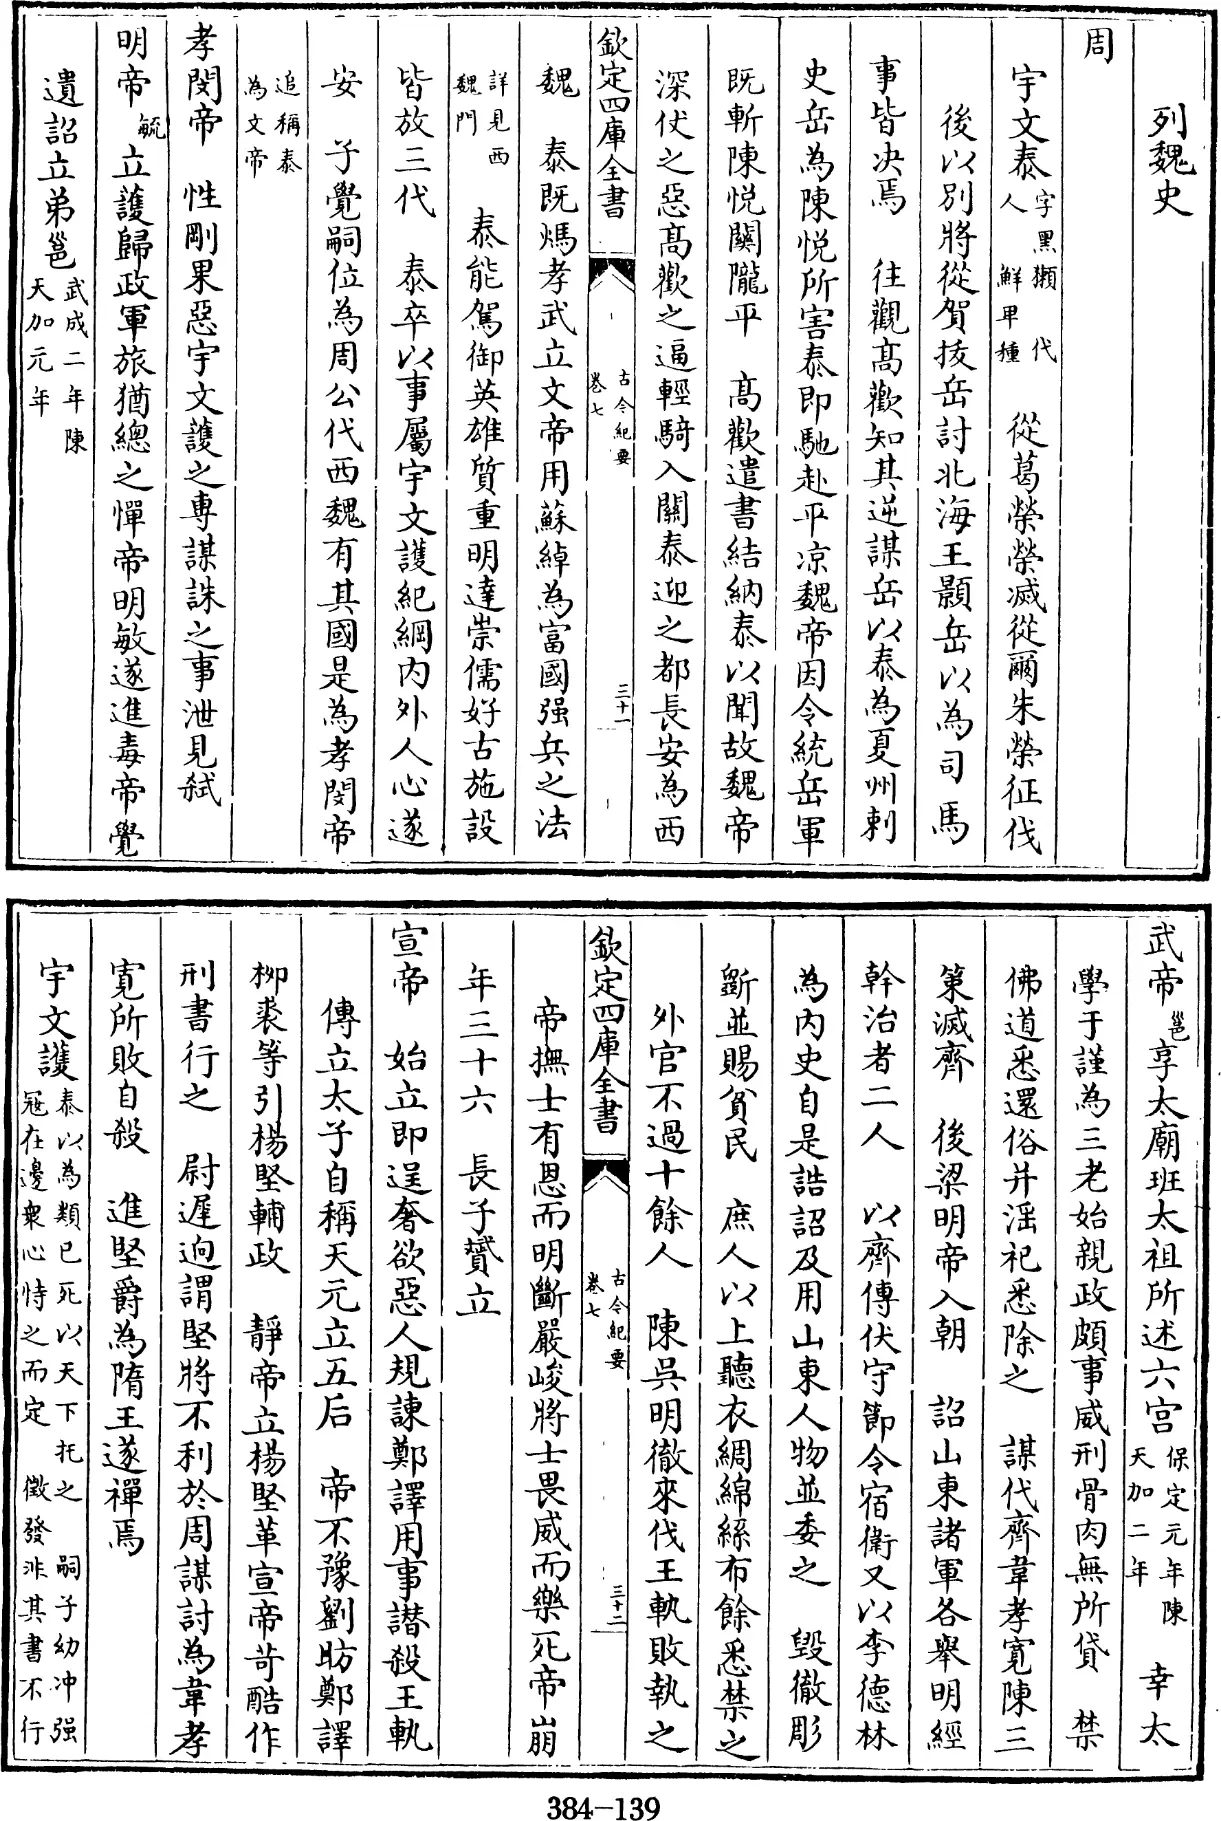 列魏史
周
宇文泰字黑獺代人鮮卑種從葛榮榮滅從爾朱榮征伐
後以別將從賀拔岳討北海王顥岳以為司馬
事皆决焉 往觀髙歡知其逆謀岳以泰為夏州刺
史岳為陳悦所害泰即馳赴平凉魏帝因令統岳軍
既斬陳悦關隴平 髙歡遣書結納泰以聞故魏帝
深伏之惡髙歡之逼輕騎入關泰迎之都長安為西
欽定四庫全書 古今紀要 卷七 三十一
魏 泰既媯孝武立文帝用蘇綽為富國强兵之法
詳見西魏門 泰能駕御英雄質重明達崇儒好古施設
皆放三代 泰卒以事屬宇文護紀綱内外人心遂
安 子覺嗣位為周公代西魏有其國是為孝閔帝
追稱泰為文帝
孝閔帝 性剛果惡宇文護之専謀誅之事泄見弑
明帝毓立護歸政軍旅猶總之憚帝明敏遂進毒帝覺
遺詔立弟邕武成二年陳天加元年
武帝邕享太廟班太祖所述六宫保定元年陳天加二年 幸太
學于謹為三老始親政頗事威刑骨肉無所貸 禁
佛道悉還俗并滛祀悉除之 謀代齊韋孝寛陳三
䇿滅齊 後梁明帝入朝 詔山東諸軍各舉明經
幹治者二人 以齊傅伏守節令宿衛又以李德林
為内史自是誥詔及用山東人物並委之 毁徹彫
斵並賜貧民 庶人以上聽衣綢綿絲布餘悉禁之
外官不過十餘人 陳吳明徹來伐王軌敗執之
欽定四庫全書 古今紀要 卷七 三十二
帝撫士有恩而明斷嚴峻將士畏威而樂死帝崩
年三十六 長子贇立
宣帝 始立即逞奢欲惡人規諫鄭譯用事譛殺王軌
傳立太子自稱天元立五后 帝不豫劉昉鄭譯
柳裘等引楊堅輔政 靜帝立楊堅革宣帝苛酷作
刑書行之 尉遲逈謂堅將不利於周謀討為韋孝
寛所敗自殺 進堅爵為隋王遂禪焉
宇文護泰以為類已死以天下托之 嗣子幼冲强冦在邊衆心恃之而定 徵發非其書不行
384-139